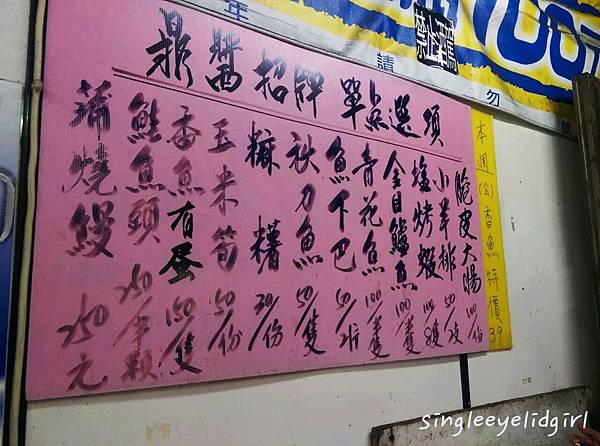 鼎醬招牌單点選項
脆皮大腸 100/份
小羊排 50/支
塩烤蝦 100/8隻
金目鱸魚 100/半隻
青花魚 100/半隻
魚下巴 50/2片
秋刀魚 50/隻
糜糬 30/份
玉米筍 50/份
香魚有蛋 150/隻
鮭魚頭 250/半顆
蒲燒鰻 250元
本週(公)香魚特價39
年
請勿飲
禁止酒駕
singleeyelidgirl